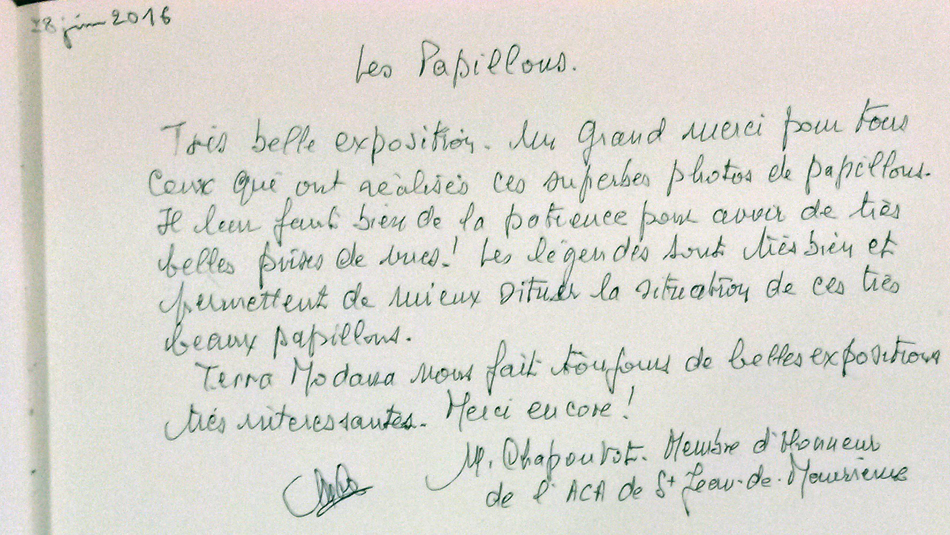 28 juin 2016
Les Papillons.
Très belle exposition. Un Grand merci pour tous
Ceux qui ont réalisés ces superbes photos de papillons.
Il leur faut bien de la patience pour avoir de très
belles prises de vues! Les légendes sont très bien et
permettent de mieux situer la situation de ces très
beaux papillons.
Terra Modana nous fait toujours de belles expositions
très interessantes. Merci encore!
M. Chapoutot. Membre d'Honneur
de l'ACA de St Jean-de-Maurienne